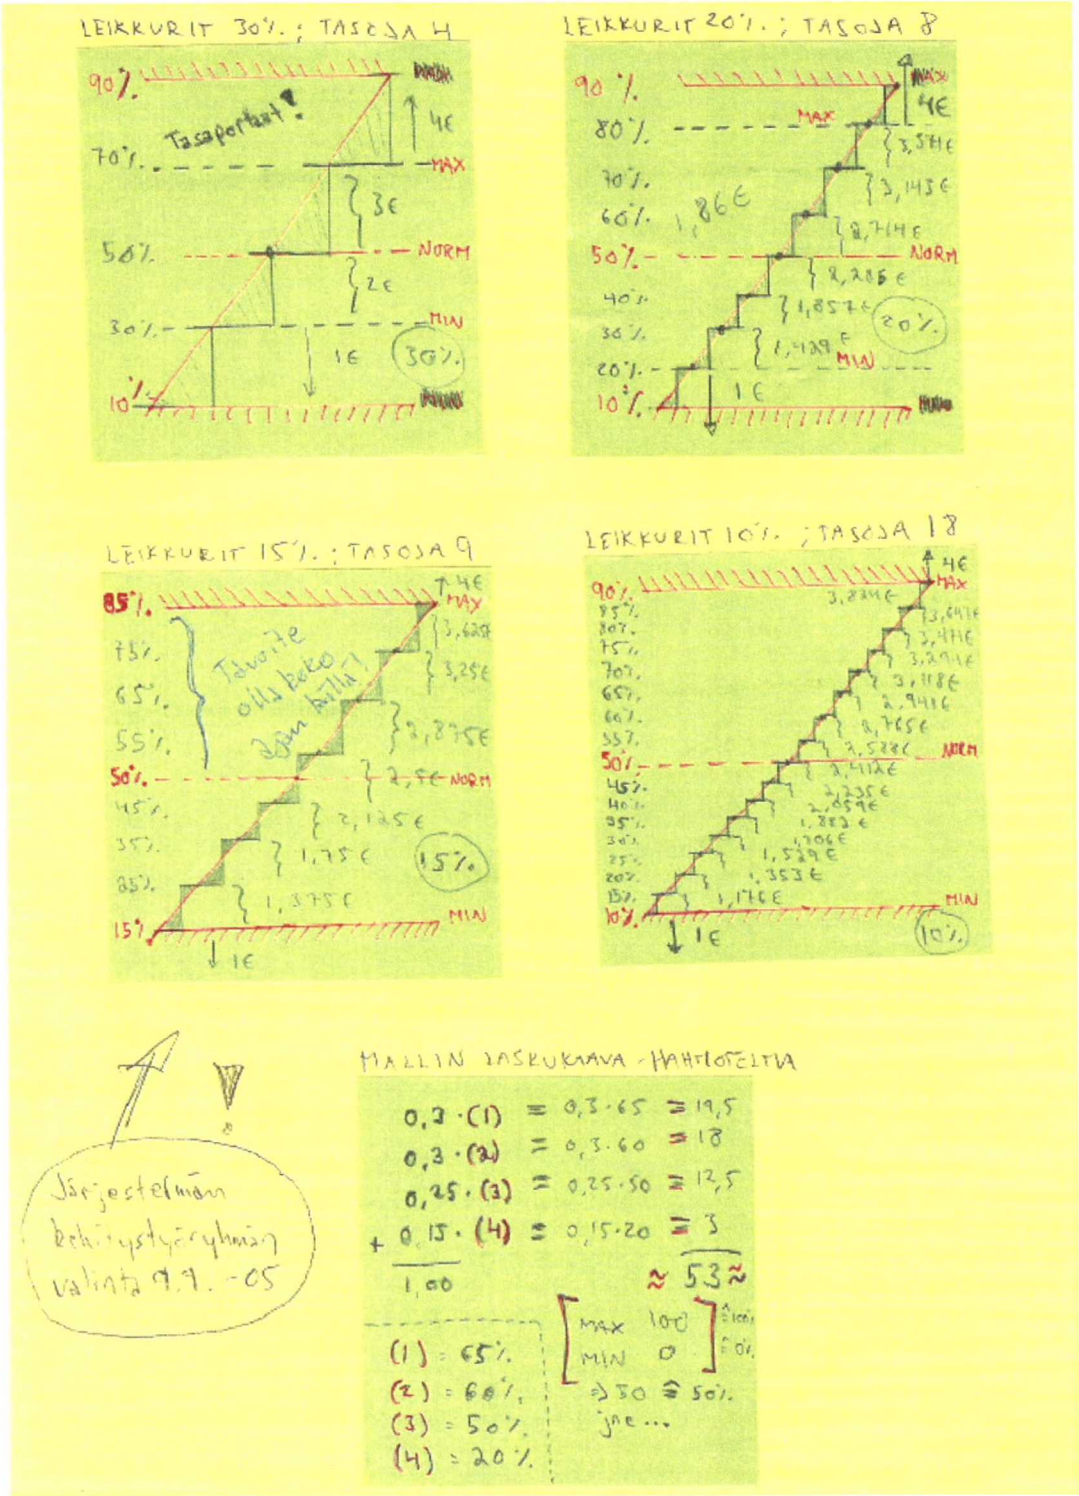 LEIKKURIT 30%. ; TASOJA 4
90%.
Tasaportaat!
4€
70%.
MAX
3€
50%.
NORM
2€
30%.
MIN
1€
30%.
10%
LEIKKURIT 20%. ; TASOJA 8
90%.
MAX
MAX
4€
80%.
3,571€
70%.
3,143€
60%.
1,86€
2,714€
50%.
NORM
2,286€
40%
1,857€
20%.
30%.
1,429€
MIN
20%.
1€
10%.
LEIKKURIT 15%. ; TASOJA 9
4€
85%.
MAX
3,625€
75%.
Tavoite
olla koko
ajan
3,25€
65%.
55%.
2,875€
50%.
2,5€
NORM
45%.
2,125€
35%.
1,75€
15%.
25%.
1,375€
15%
MIN
1€
LEIKKURIT 10%. ; TASOJA 18
4€
90%
MAX
3,824€
85%.
3,647€
80%.
3,471€
75%.
3,294€
70%.
3,118€
65%.
2,941€
60%.
2,765€
55%.
2,588€
50%.
NORM
2,412€
45%.
2,235€
40%.
2,059€
35%.
1,882€
30%.
1,706€
25%.
1,529€
20%.
1,353€
15%.
1,176€
MIN
10%
10%.
1€
!
Järjestelmän
kehitystyöryhmän
valinta 9.9. -05
MALLIN LASKUKAAVA -HAHMOTELMA
0,3 · (1) = 0,3·65 = 19,5
0,3 · (2) = 0,3·60 = 18
0,25 · (3) = 0,25·50 = 12,5
+ 0,15 · (4) = 0,15·20 = 3
1,00
≈ 53 ≈
MAX 100 ≙ 100%
MIN 0 ≙ 0%
=> 50 ≙ 50%.
jne...
(1) = 65%.
(2) = 60%.
(3) = 50%.
(4) = 20%.